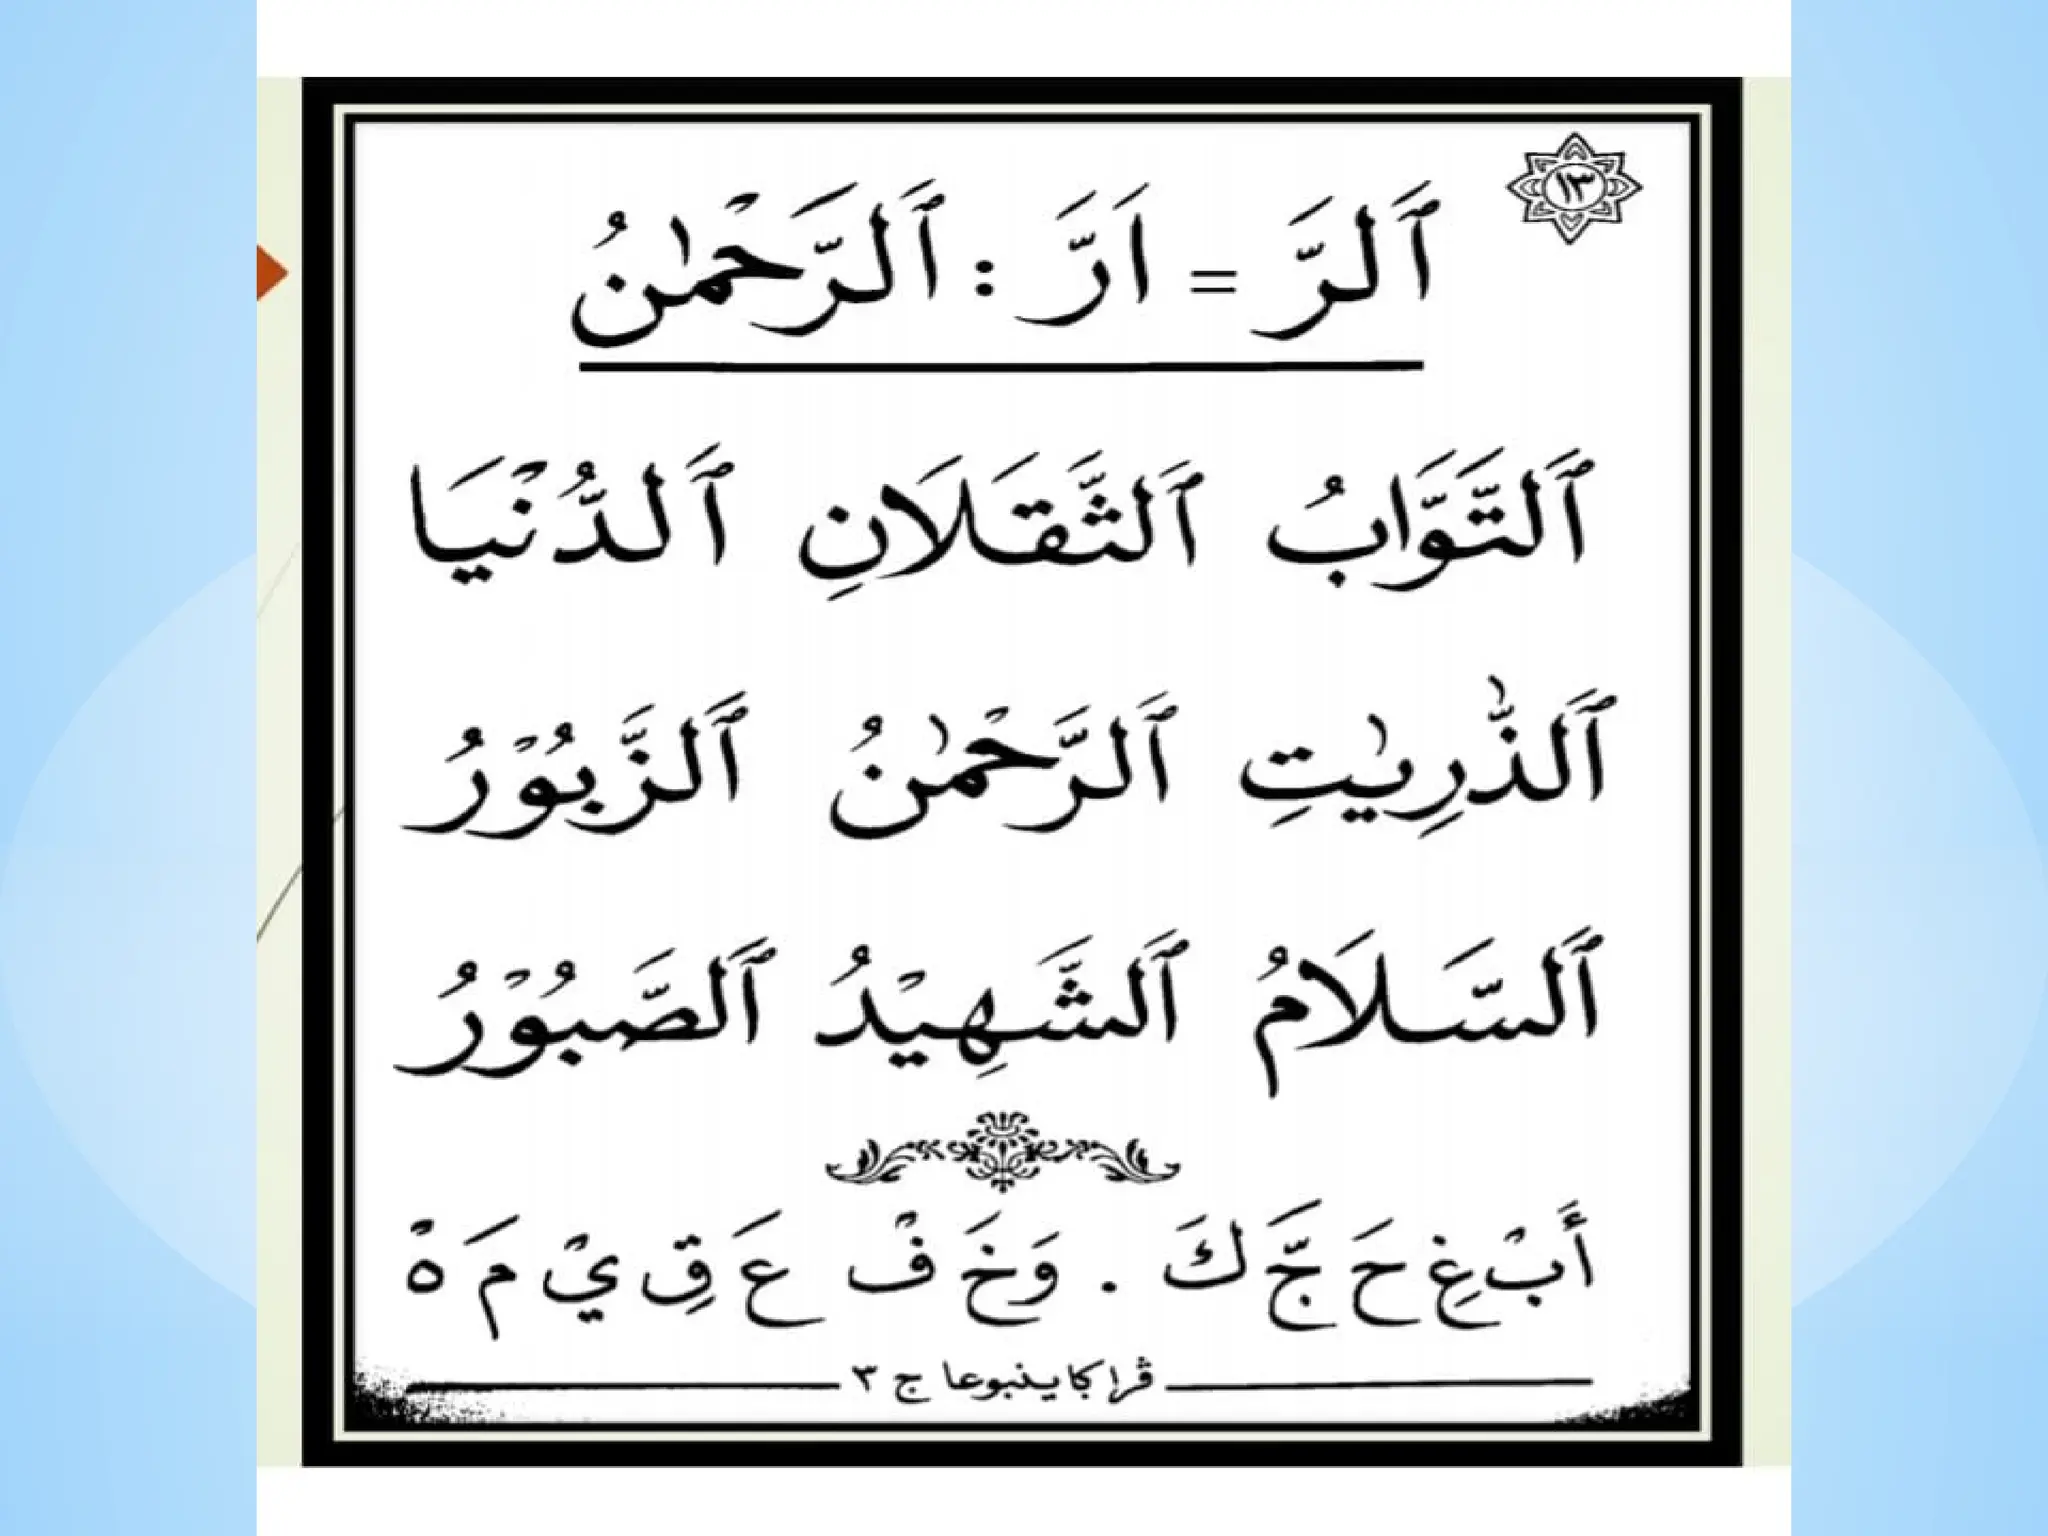 ١٣
ٱَلرَّ = اَرَّ : ٱَلرَّحْمٰنُ
ٱَلتَّوَّابُ ٱَلثَّقَلَانِ ٱَلدُّنْيَا
ٱَلذّٰرِيٰتِ ٱَلرَّحْمٰنُ ٱَلزَّبُوْرُ
ٱَلسَّلَامُ ٱَلشَّهِيْدُ ٱَلصَّبُوْرُ
أَبْغِ حَجَّكَ . وَخَفْ عَقِيْمَهْ
ج ٣